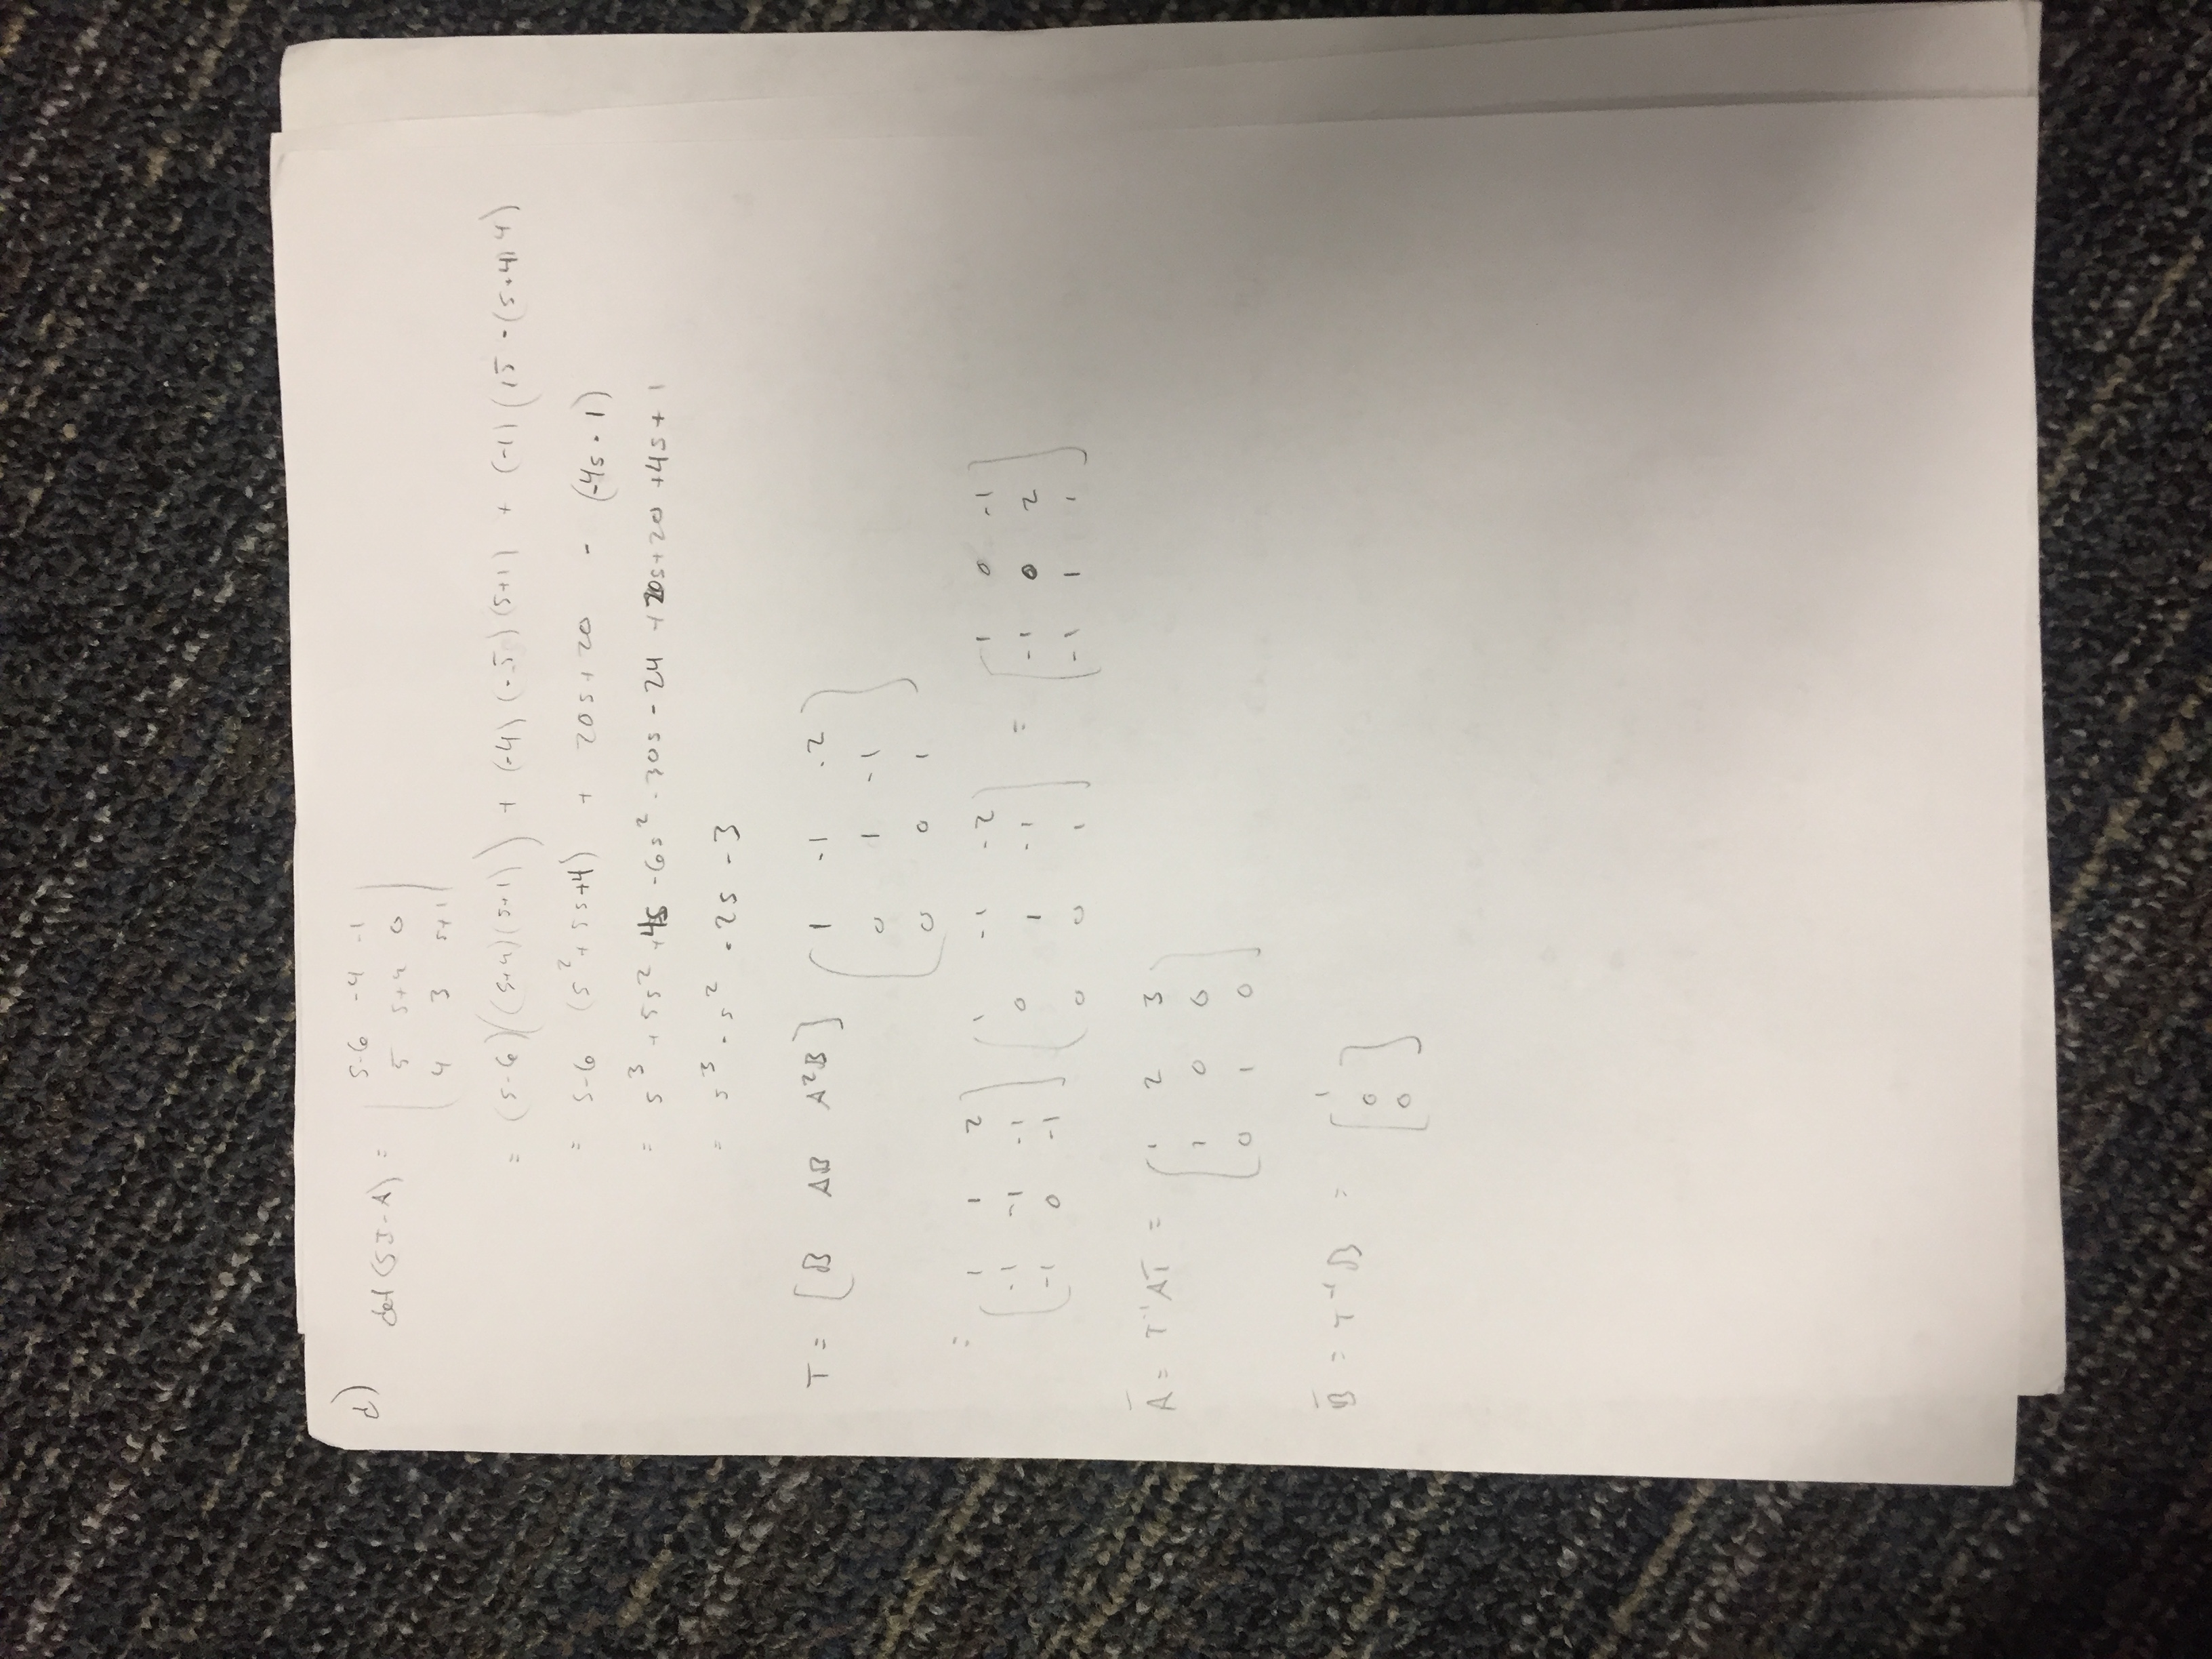 d) det(SI-A) = | s-6 -4 -1 |
| 5 s+4 0 |
| 4 3 s+1 |
= (s-6)((s+4)(s+1)) + (-4)(-5)(s+1) + (-1)(15-(s+4)4)
= s-6 (s²+5s+4) + 20s+20 - (-4s-1)
= s³+5s²+4s-6s²-30s-24+20s+20+4s+1
= s³-s²-2s-3
T = [B AB A²B] ( 1 -1 -2 )
0 1 -1
0 0 1
= ( 1 1 2 ] ( 1 -1 -2 ) = [ 1 0 -1 ]
-1 -1 -1 0 1 -1 -1 0 2
-1 0 -1 0 0 1 -1 1 1
Ā = T⁻¹AT = [ 1 2 3 ]
1 0 0
0 1 0
B̄ = T⁻¹B = [ 1
0
0 ]